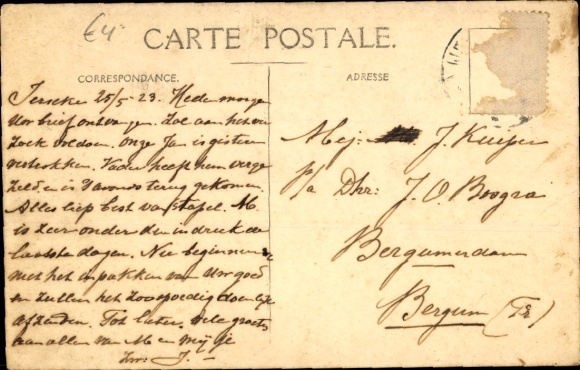 €4
CARTE POSTALE.
CORRESPONDANCE.
ADRESSE
Ierseke 25/5-23. Hedenmorge
Uw brief ontvangen. Zal aan het ver
zoek voldoen. onze Jan is gisteren
vertrokken. Vader heeft hem verge
zeld en is 's avonds terug gekomen.
Alles liep best van stapel. M.
is zeer onder den indruk de
laatste dagen. We beginnen
met het inpakken van Uw goed
en zullen het zoo spoedig doenlijk
afzenden. Tot later, vele groeten
aan allen van M en mij je
zw: J.
Mej: J. Kuiper
p/a Dhr: J. O. Boogra
Bergumerdam
Bergum (Fr)